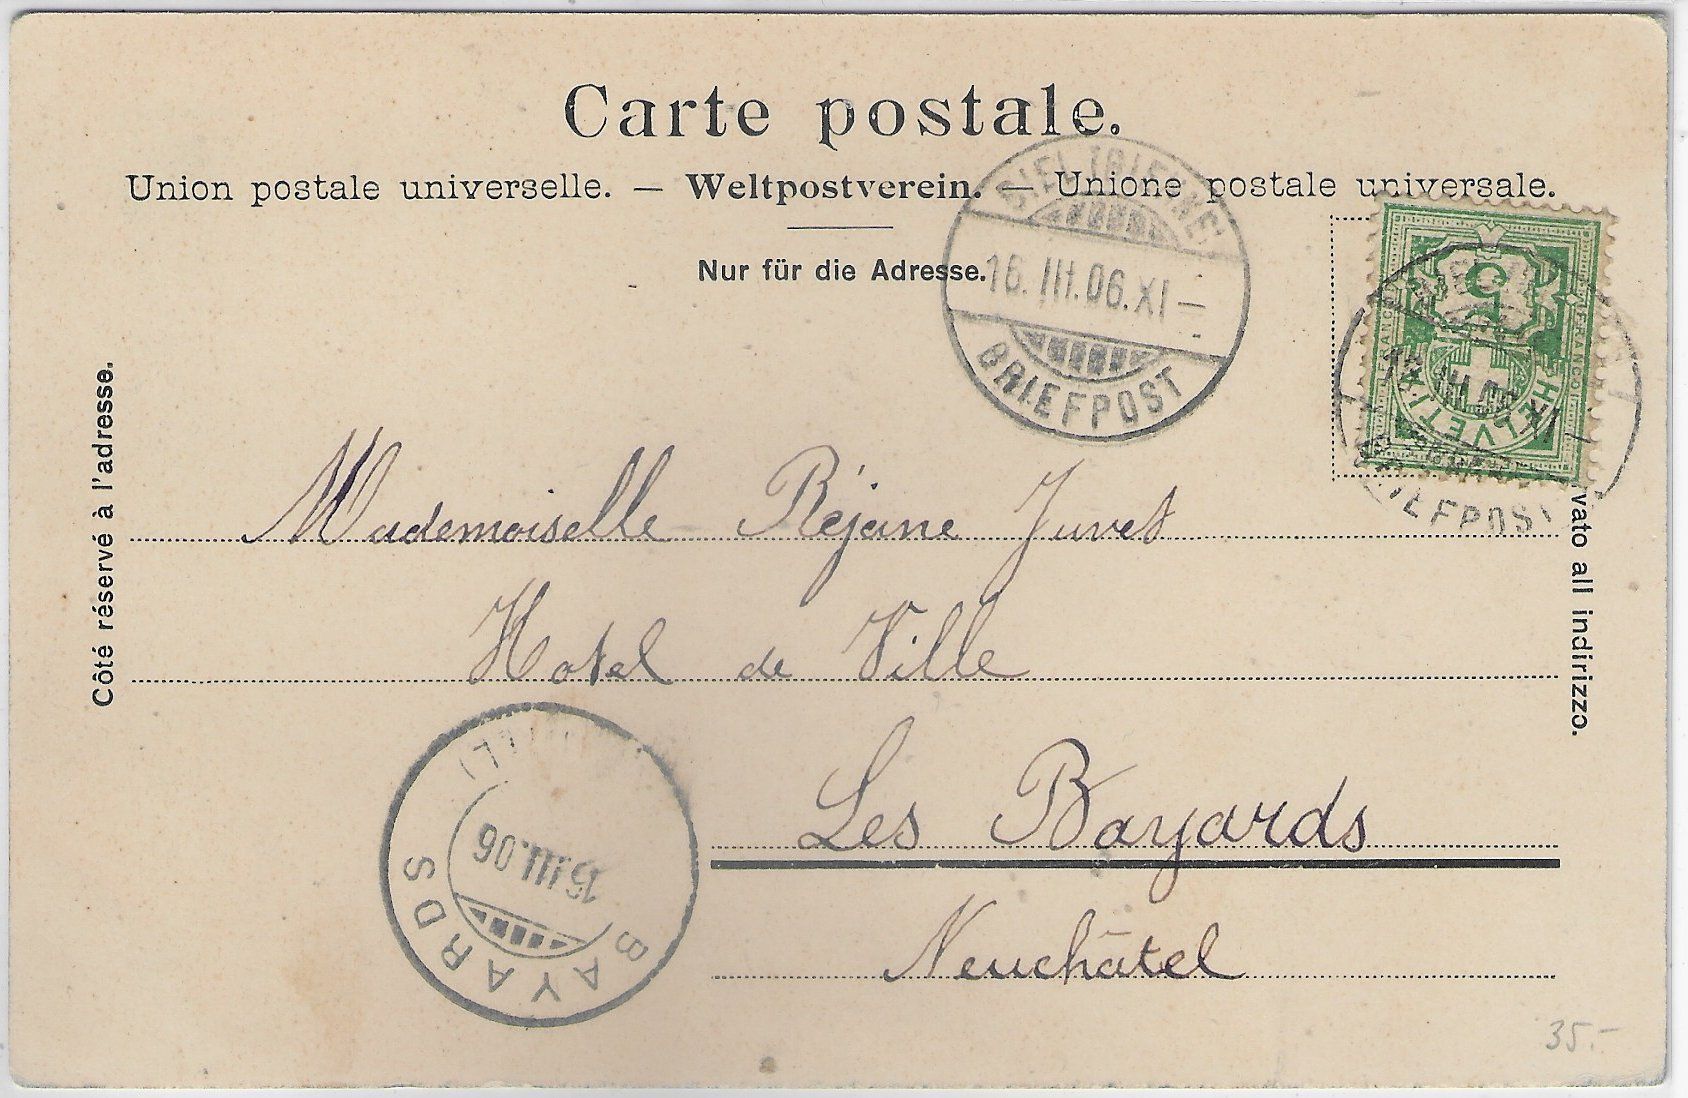 Carte postale.
Union postale universelle. — Weltpostverein. — Unione postale universale.
Nur für die Adresse.
Côté réservé à l'adresse.
BIEL (BIENNE)
16.III.06.XI—
BRIEFPOST
5
FRANCO
HELVETIA
16.III.06.XI
BRIEFPOST
vato all indirizzo.
Mademoiselle Réjane Juvet
Hotel de Ville
Les Bayards
Neuchâtel
BAYARDS
III.06
35.-